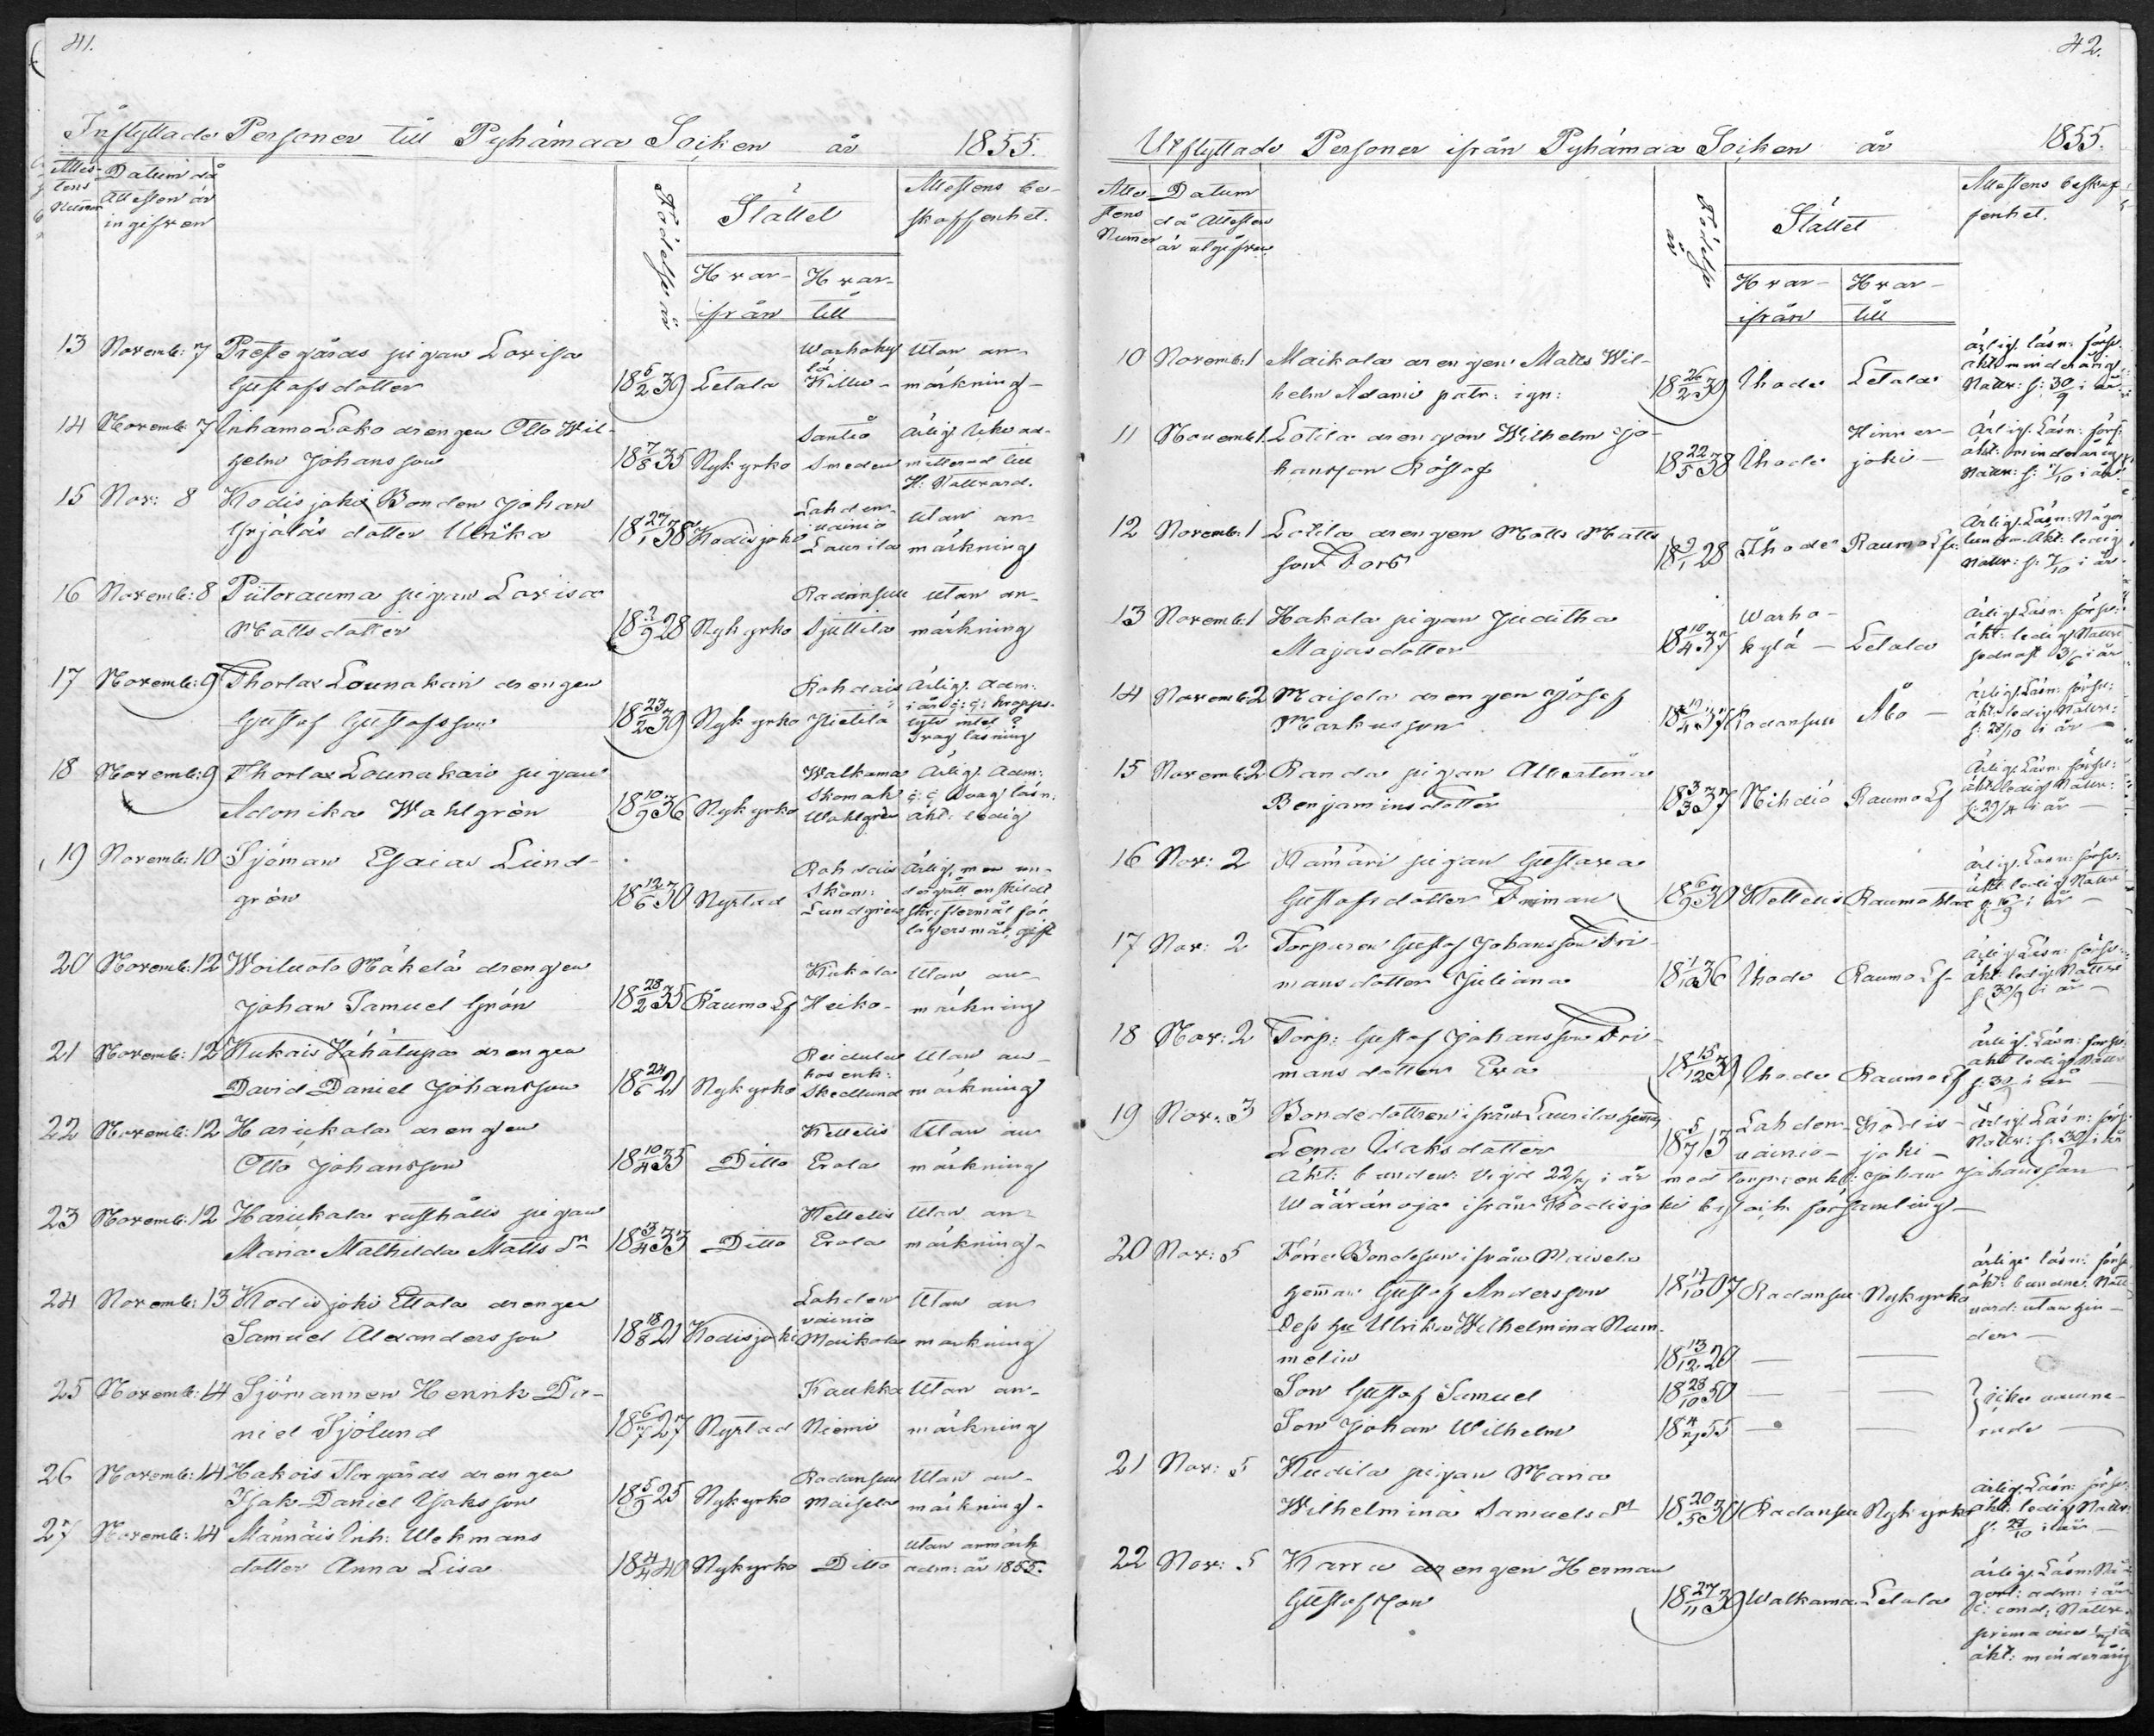 41.
Inflyttade Personer till Pyhämaa Socken år 1855.
Attes-
tens
Numer
Datum då
Attesten är
ingifven
Födelse år
Stället
Hvar-
ifrån
Hvar-
till
Attestens be-
skaffenhet.
13 Novemb: 7 Prestegårds pigan Lovisa
Gustafsdotter 18 5/2 39 Letala Warhoky
lä Killu- Utan an-
märkning-
14 Novemb: 7 Inhamo Lako drengen Otto Wil-
helm Johansson 18 7/8 35 Nykyrko Santio
Smeden ärlig
mitterad till
H: Nattvard.
15 Nov: 8 Kodisjoki Bonden Johan
Yrjäläs dotter Ulrika 18 27/1 38 Kodisjoki Lahden-
vainio
Laurila Utan an-
märkning
16 Novemb: 8 Piitorauma pigan Lovisa
Mattsdotter 18 2/9 28 Nykyrko Radansuu
Sjuttila utan an-
märkning
17 Novemb: 9 Thorlax Lounakari drengen
Gustaf Gustafsson 18 23/2 39 Nykyrko Rohdais
Hietila Ärlig. Adm:
i år
Svag läsning
18 Novemb: 9 Thorlax Lounakari pigan
Adonika Wahlgrén 18 10/9 36 Nykyrko Walkama
Skomak
Wahlgrén Ärlig. Adm:
svag läsn:
äkt: ledig
19 Novemb: 10 Sjöman Esaias Lund-
grén 18 12/6 30 Nystad Rohdais
Skom:
Lundgrén Ärlig, men un-
dergått enskildt
skriftermål för
lägersmål, gift
20 Novemb: 12 Woiluoto Mäkelä drengen
Johan Samuel Grön 18 28/2 35 Raumo Lf Kukola
Heiko- Utan an-
märkning
21 Novemb: 12 Kukais Vähätupa drengen
David Daniel Johansson 18 24/6 21 Nykyrko Reidulu
hos enk:
Skedlund Utan an-
märkning
22 Novemb: 12 Harukala drengen
Otto Johansson 18 10/4 35 Ditto Kettelis
Erola Utan an
märkning
23 Novemb: 12 Harukala rusthålls pigan
Maria Mathilda Matts dr 18 13/4 33 Ditto Kettelis
Erola Utan an-
märkning-
24 Novemb: 13 Kodisjoki Ettala drengen
Samuel Alexandersson 18 18/8 21 Kodisjoki Lahden
vainio
Maikola Utan an
märkning
25 Novemb: 14 Sjömannen Henrik Da-
niel Sjölund 18 6/7 27 Nystad Kaukka
Niemi Utan an-
märkning
26 Novemb: 14 Hakois Storgårds drengen
Isak Daniel Isaksson 18 5/9 25 Nykyrko Radansuu
Maisela Utan an-
märkning-
27 Novemb: 14 Männäis Inh: Wekmans
dotter Anna Lisa 18 4/4 40 Nykyrko Ditto Utan anmärk
adm: år 1855.
42.
Utflyttade Personer ifrån Pyhämaa Socken år 1855.
Atte-
stens
Numer
Datum
då Attesten
är utgifven
Födelse
år
Stället
Hvar-
ifrån
Hvar-
till
Attestens beskaf
fenhet.
10 Novemb: 1 Maikola drengen Matts Wil-
helm Adamis patr: ign: 18 26/2 39 Ihode Letala ärlig. läsn: försv:
äkt: minderårig
Nattv: s: 30/9 i år
11 Novemb 1 Lotila drengen Wilhelm Jo-
hansson Röstof 18 22/5 38 Ihode Hinner-
joki- Ärlig. Läsn: förs:
äkt: minderårig
Nattv: s: 7/10 i år
12 Novemb: 1 Lotila drengen Matts Matts
son Fors 18 9/1 28 Ihode Raumo Lf: Ärlig. Läsn: Någor
lunda. Äkt: ledig
Nattv: s: 7/10 i år
13 Novemb 1 Hakala pigan Juditha
Majasdotter 18 10/4 37 Warho-
kylä- Letala Ärlig. Läsn: försv:
äkt: ledig Nattv:
sednast 3/6 i år
14 Novemb: 2 Maisela drengen Josef
Markusson 18 17/4 37 Radansuu Åbo- Ärlig. Läsn: försv:
äkt: ledig Nattv:
s: 28/10 i år-
15 Novemb: 2 Randa pigan Albertina
Benjaminsdotter 18 3/3 37 Nihdiö Raumo Lf Ärlig. Läsn: försv:
äkt: ledig Nattv:
s: 29/4 i år-
16 Nov: 2 Kämäri pigan Gustava
Gustafsdotter Friman 18 6/9 30 Kettelis Raumo ärlig. Läsn: försv:
äkt: ledig Nattv
s: 16/9 i år-
17 Nov: 2 Torparen Gustaf Johansson Fri-
mans dotter Juliana 18 1/10 36 Ihode Raumo Lf- ärlig. Läsn: försv:
äkt: ledig Nattv:
s: 30/9 i år-
18 Nov: 2 Torp: Gustaf Johansson Fri-
mans dotter Eva 18 15/12 39 Ihode Raumo Lf ärlig. Läsn: försv:
äkt: ledig Nattv
s: 30/9 i år-
19 Nov: 3 Bondedottren ifrån Laurila hemm:
Lena Isaksdotter 18 5/7 13 Lahden-
vainio- Kodis-
joki- Ärlig. Läsn: förs:
Nattv: s: 30/9 i år
Äkt: bunden: Vigd 22/7 i år med torp: enkl: Johan Johansson
Wääränoja ifrån Kodisjoki by och församling-
20 Nov: 5 Förre Bondeson ifrån Maisela
hemman Gustaf Andersson 18 14/10 07 Radansuu Nykyrko ärliga läsn: förs:
äkt: bundne: Natt
vard: utan hin-
der-
Dess hu Ulrika Wilhelmina Num-
melin 18 13/12 20 — —
Son Gustaf Samuel 18 28/10 50 — —
Son Johan Wilhelm 18 4/7 55 — —
21 Nov: 5 Kudila pigan Maria
Wilhelmina Samuels dr 18 20/5 30 Radansuu Nykyrko ärlig. Läsn: försv:
äkt: ledig Nattv:
s: 28/10 i år-
22 Nov: 5 Karru drengen Herman
Gustafsson 18 27/11 39 Walkama Letala ärlig. Läsn: Nå
gorl: adm: i år
Nattv:
prima vice 1/7 i år
äkt: minderårig